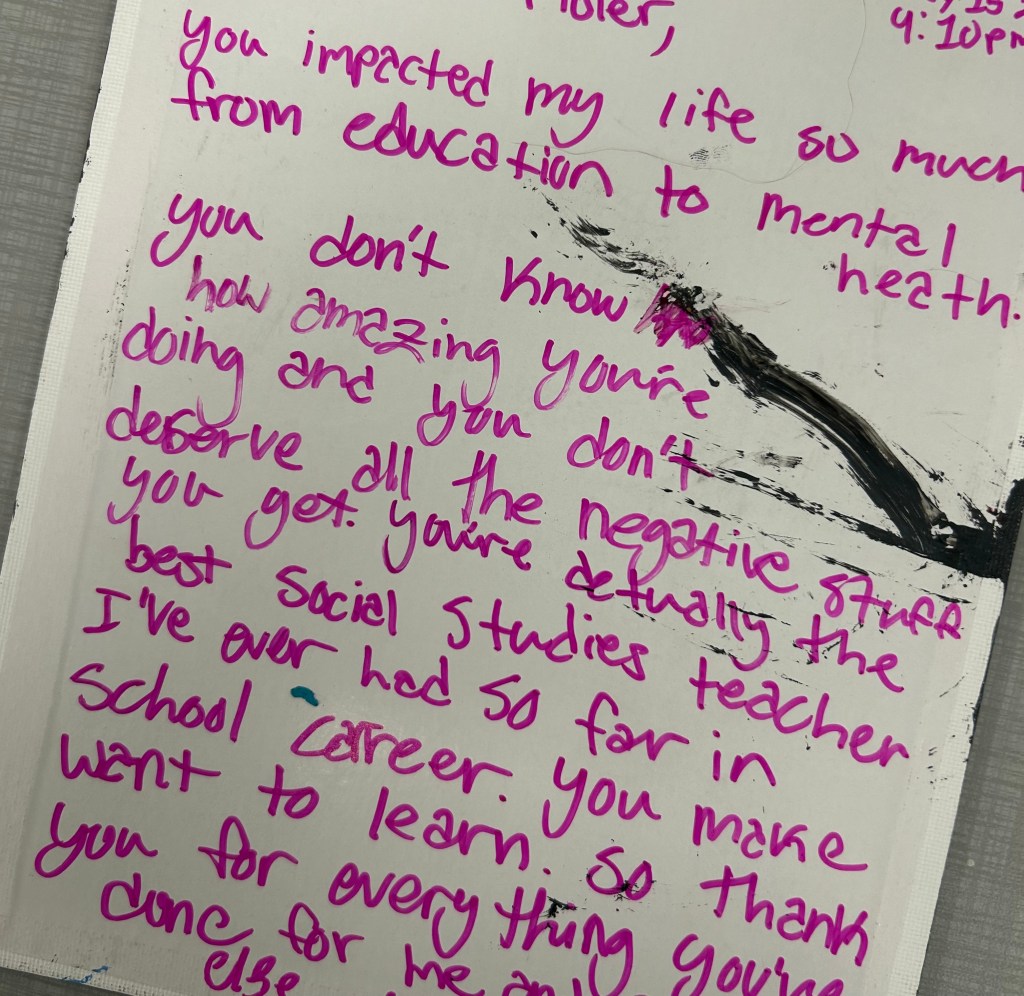 4:10pm
you impacted my life so much
from education to mental
heath.
you don't know
how amazing you're
doing and you don't
deserve all the negative stuff
you get. you're actually the
best social studies teacher
I've ever had so far in
school career. you make
want to learn. so thank
you for everything you've
done for me and
else